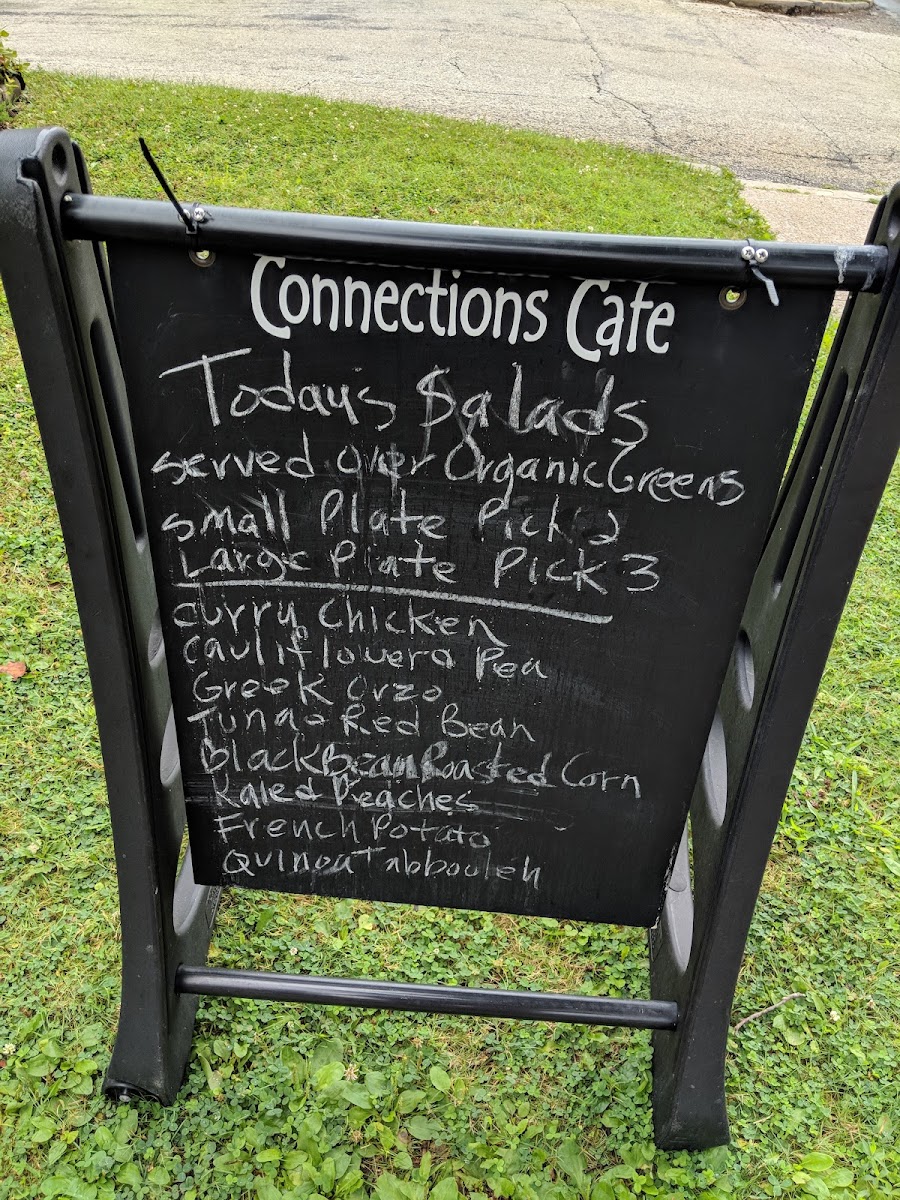 Connections Cafe
Today's Salads
served over Organic Greens
small Plate Pick 2
Large Plate Pick 3
curry Chicken
Cauliflower & Pea
Greek Orzo
Tuna & Red Bean
Black Bean Roasted Corn
Kale & Peaches
French Potato
Quinoa Tabbouleh